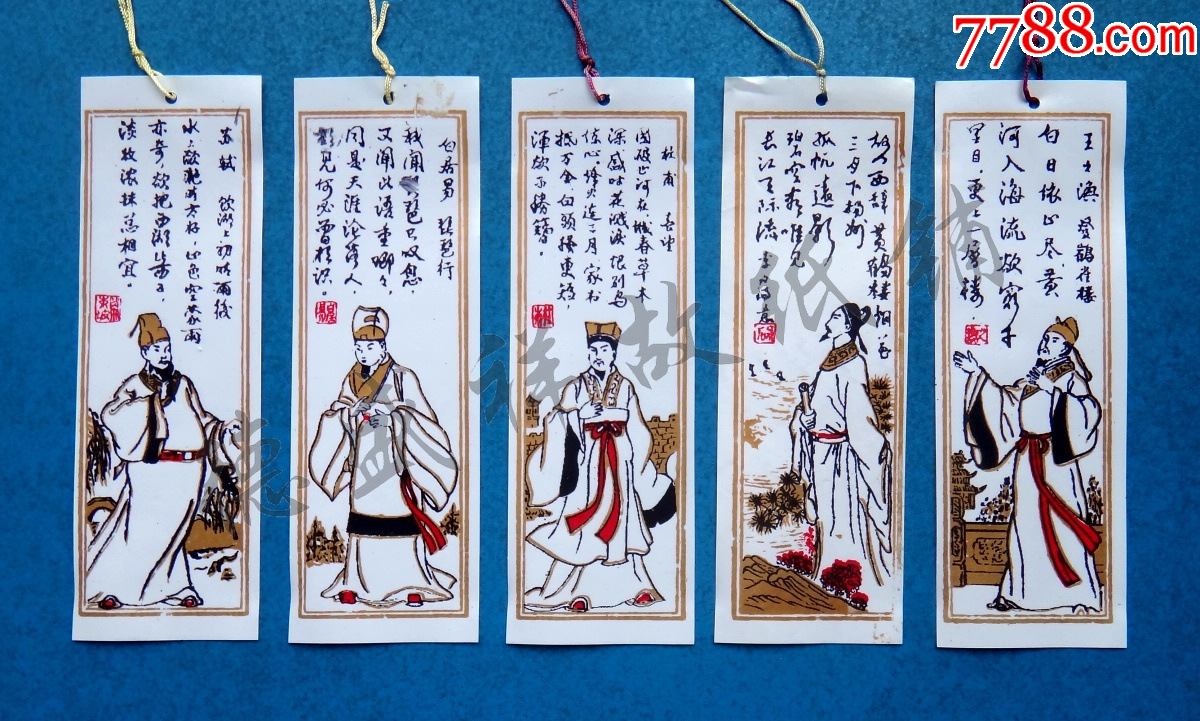 7788.com
苏轼 饮湖上初晴雨後
水光潋滟晴方好，山色空蒙雨
亦奇，欲把西湖比西子，
淡妆浓抹总相宜。
白居易 琵琶行
我闻琵琶已叹息，
又闻此语重唧々，
同是天涯沦落人
相见何必曾相识。
杜甫 春望
国破山河在，城春草木
深感时花溅泪，恨别鸟
惊心，烽火连三月，家书
抵万金，白头搔更短，
浑欲不胜簪。
故人西辞黄鹤楼烟花
三月下扬州
孤帆远影
碧空尽唯见
长江天际流 李白诗意
王之涣 登鹳雀楼
白日依山尽，黄
河入海流，欲穷千
里目，更上一层楼。
德盛祥故纸铺